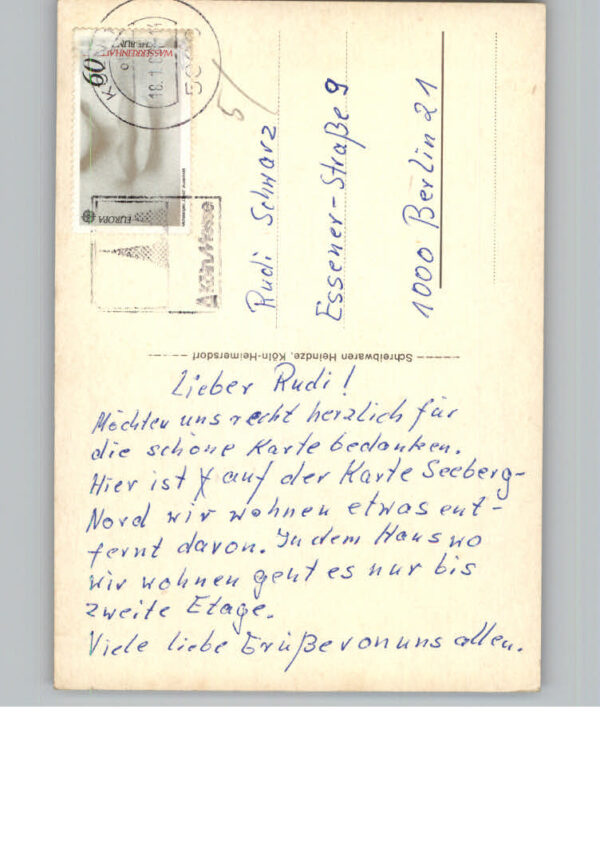 60
WASSERREINHALTUNG
EUROPA
5
Rudi Schwarz
Essener-Straße 9
1000 Berlin 21
Schreibwaren Heindze, Köln-Heimersdorf
Lieber Rudi!
Möchten uns recht herzlich für
die schöne Karte bedanken.
Hier ist X auf der Karte Seeberg-
Nord wir wohnen etwas ent-
fernt davon. In dem Haus wo
wir wohnen geht es nur bis
zweite Etage.
Viele liebe Grüße von uns allen.